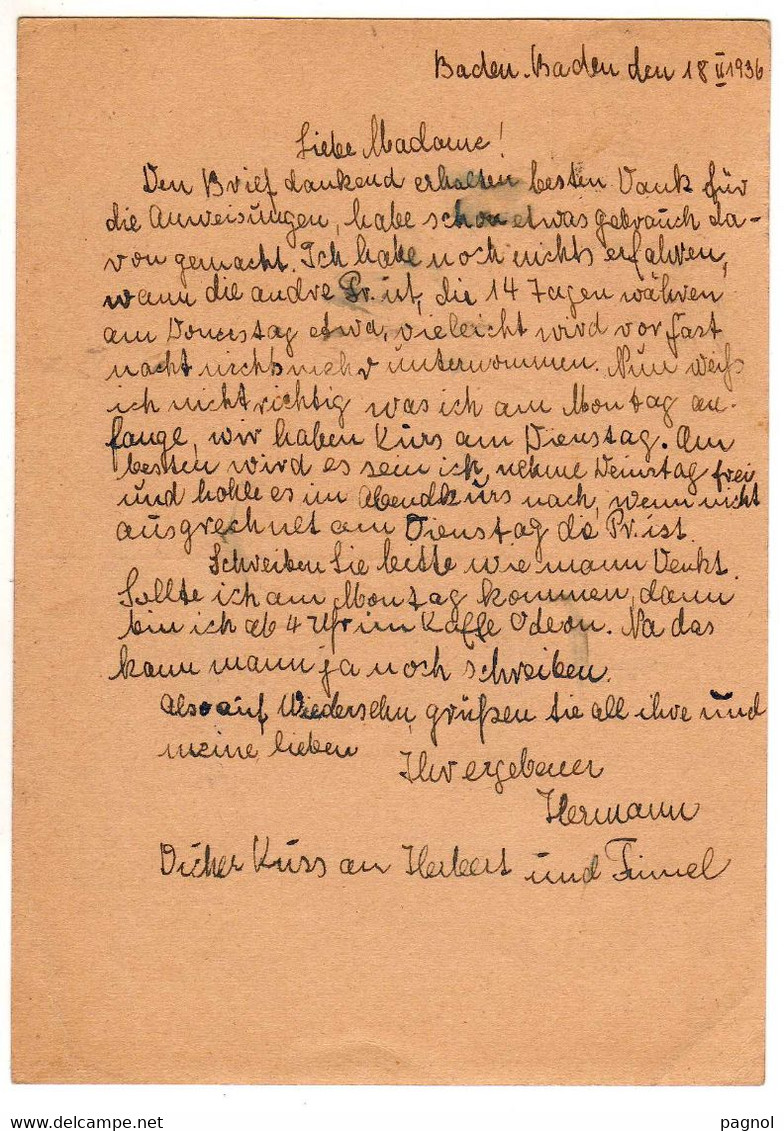 Baden-Baden den 18 II 1936
Liebe Madame!
Den Brief dankend erhalten besten Dank für
die Anweisungen, habe schon etwas gebrauch da-
von gemacht. Ich habe noch nichts erfahren,
wann die andre Pr. ist, die 14 Tagen währen
am Donerstag etwa, vieleicht wird vor fast
nacht nichts mehr unternommen. Nun weiß
ich nicht richtig was ich am Montag an-
fange, wir haben Kurs am Dienstag. Am
besten wird es sein ich, nehme Deinstag frei
und hohle es im Abendkurs nach, wenn nicht
ausgrechnet am Dienstag die Pr. ist.
Schreiben Sie bitte wie mann Denkt.
Sollte ich am Montag kommen, dann
bin ich ab 4 Uhr im Kaffe Odeon. Na das
kann mann ja noch schreiben.
Also auf Wiedersehn, grüßen sie all ihre und
meine lieben
Ihr ergebener
Hermann
Dicker Kuss an Herbert und
pagnol